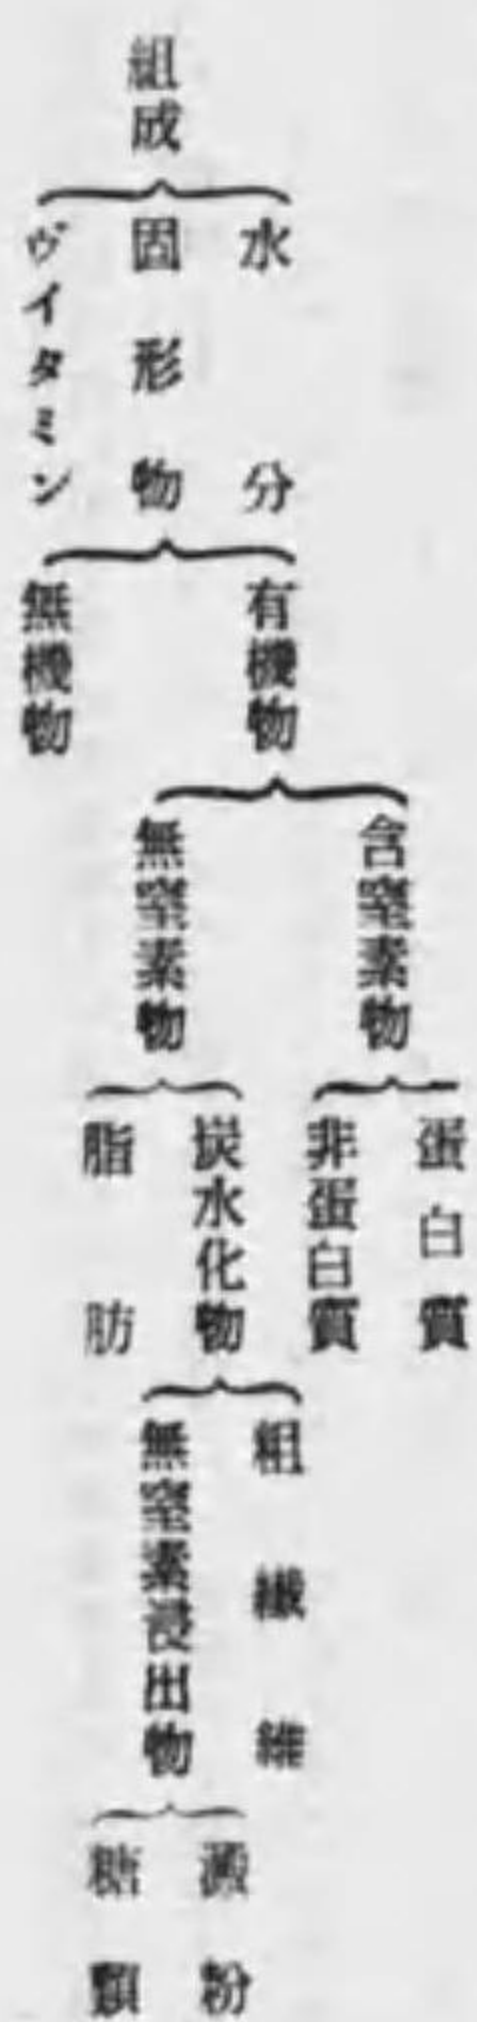 組成
水分
固形物
ヴイタミン
有機物
無機物
含窒素物
無窒素物
蛋白質
非蛋白質
炭水化物
脂肪
粗繊維
無窒素浸出物
澱粉
糖類